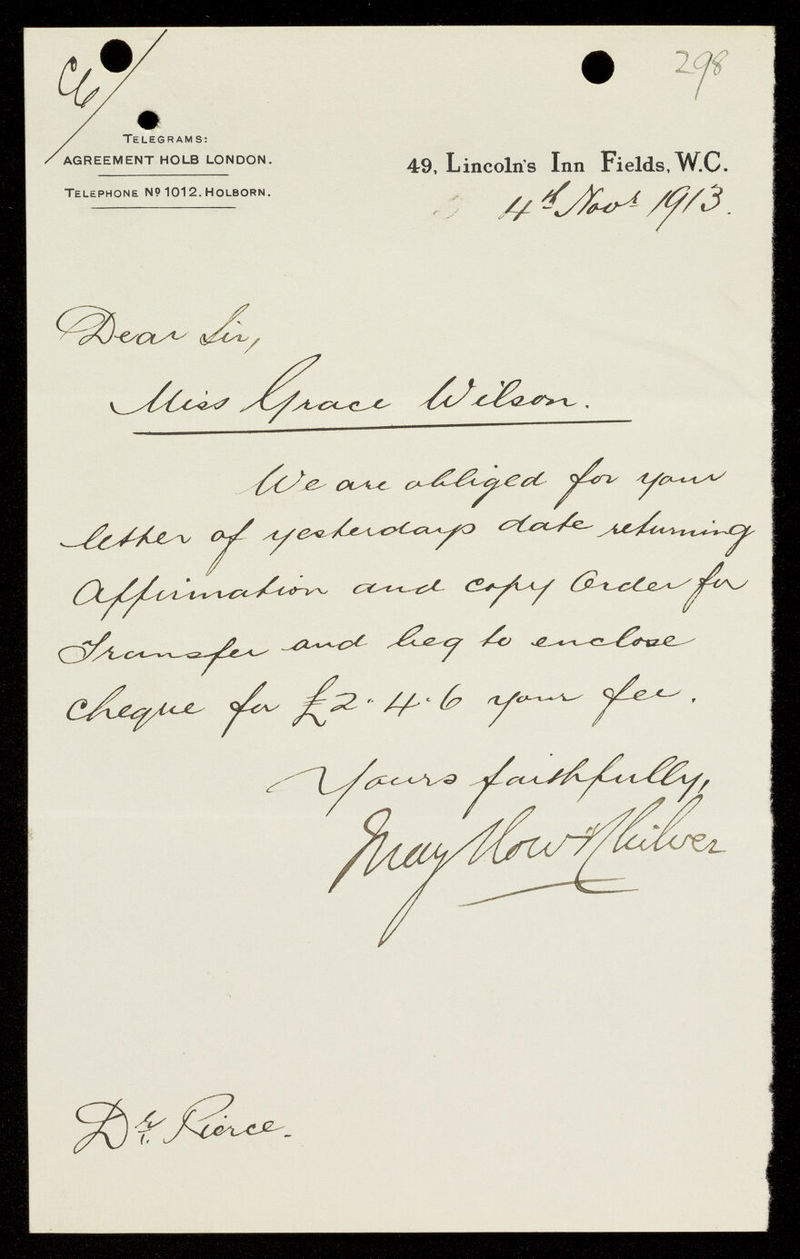 298
TELEGRAMS:
AGREEMENT HOLB LONDON.
TELEPHONE Nº 1012. HOLBORN.
49, Lincoln's Inn Fields, W.C.
4th Novr 1913.
Dear Sir,
Miss Grace Wilson.
We are obliged for your
letter of yesterdays date returning
Affirmation and copy Order for
Transfer and beg to enclose
cheque for £2.4.6 your fee.
Yours faithfully,
May How & Chilver
Dr. Pierce.